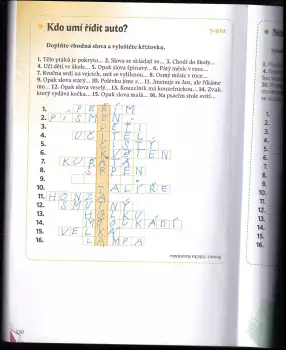 Kdo umí řídit auto?
7–9 let
Doplňte vhodná slova a vyluštěte křížovku.
1. Tělo ptáků je pokryto... 2. Slova se skládají ze... 3. Chodí do školy...
4. Učí děti ve škole... 5. Opak slova špinavý... 6. Pátý měsíc v roce...
7. Kvočna sedí na vejcích, než se vylíhnou... 8. Osmý měsíc v roce...
9. Opak slova starý... 10. Polévku jíme z... 11. Jmenuje se Jan, ale říkáme
mu... 12. Opak slova veselý... 13. Kouzelník má kouzelnickou... 14. Zvuk,
který vydává kočka... 15. Opak slova malá... 16. Na psacím stole svítí...
1. PEŘÍM
2. PÍSMEN
3. DĚTI
4. UČITEL
5. ČISTÝ
6. KVĚTEN
7. KUŘATA
8. SRPEN
9.
10. TALÍŘE
11. HONZA
12. SMUTNÝ
13. HŮLKU
14. MŇOUKÁNÍ
15. VELKÁ
16. LAMPA
130